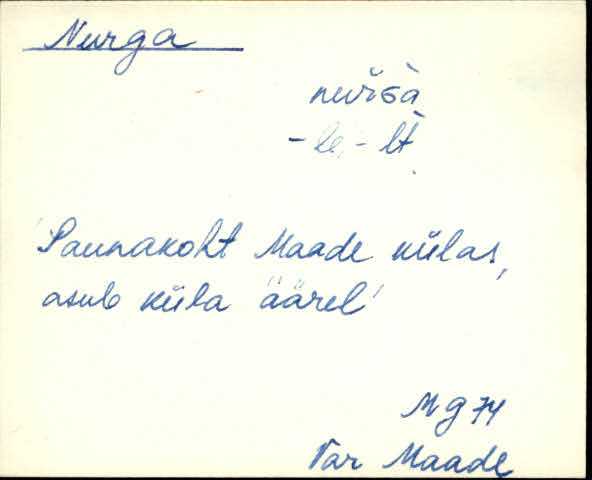 Nurga
-le, -lt
Saunakoht Maade külas,
asub küla äärel
Mg 74
Var Maade